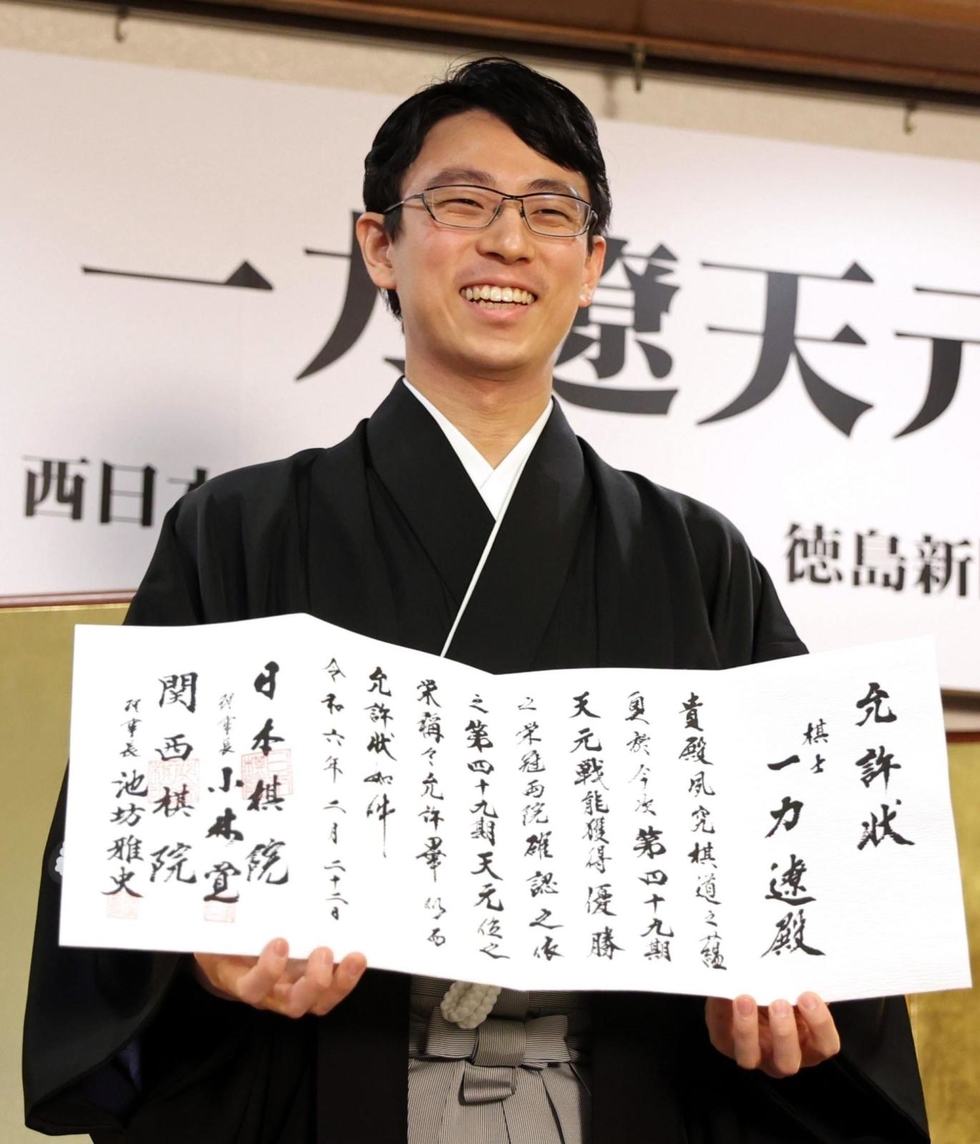 一力遼天元
西日本
徳島新聞
允許状
棋士
一力遼殿
貴殿夙究棋道之蘊
奥於今次第四十九期
天元戦能獲得優勝
之栄冠両院確認之依
之第四十九期天元位之
栄称々允許畢仍而
允許状如件
令和六年二月二十二日
日本棋院
理事長 小林覚
関西棋院
理事長 池坊雅史